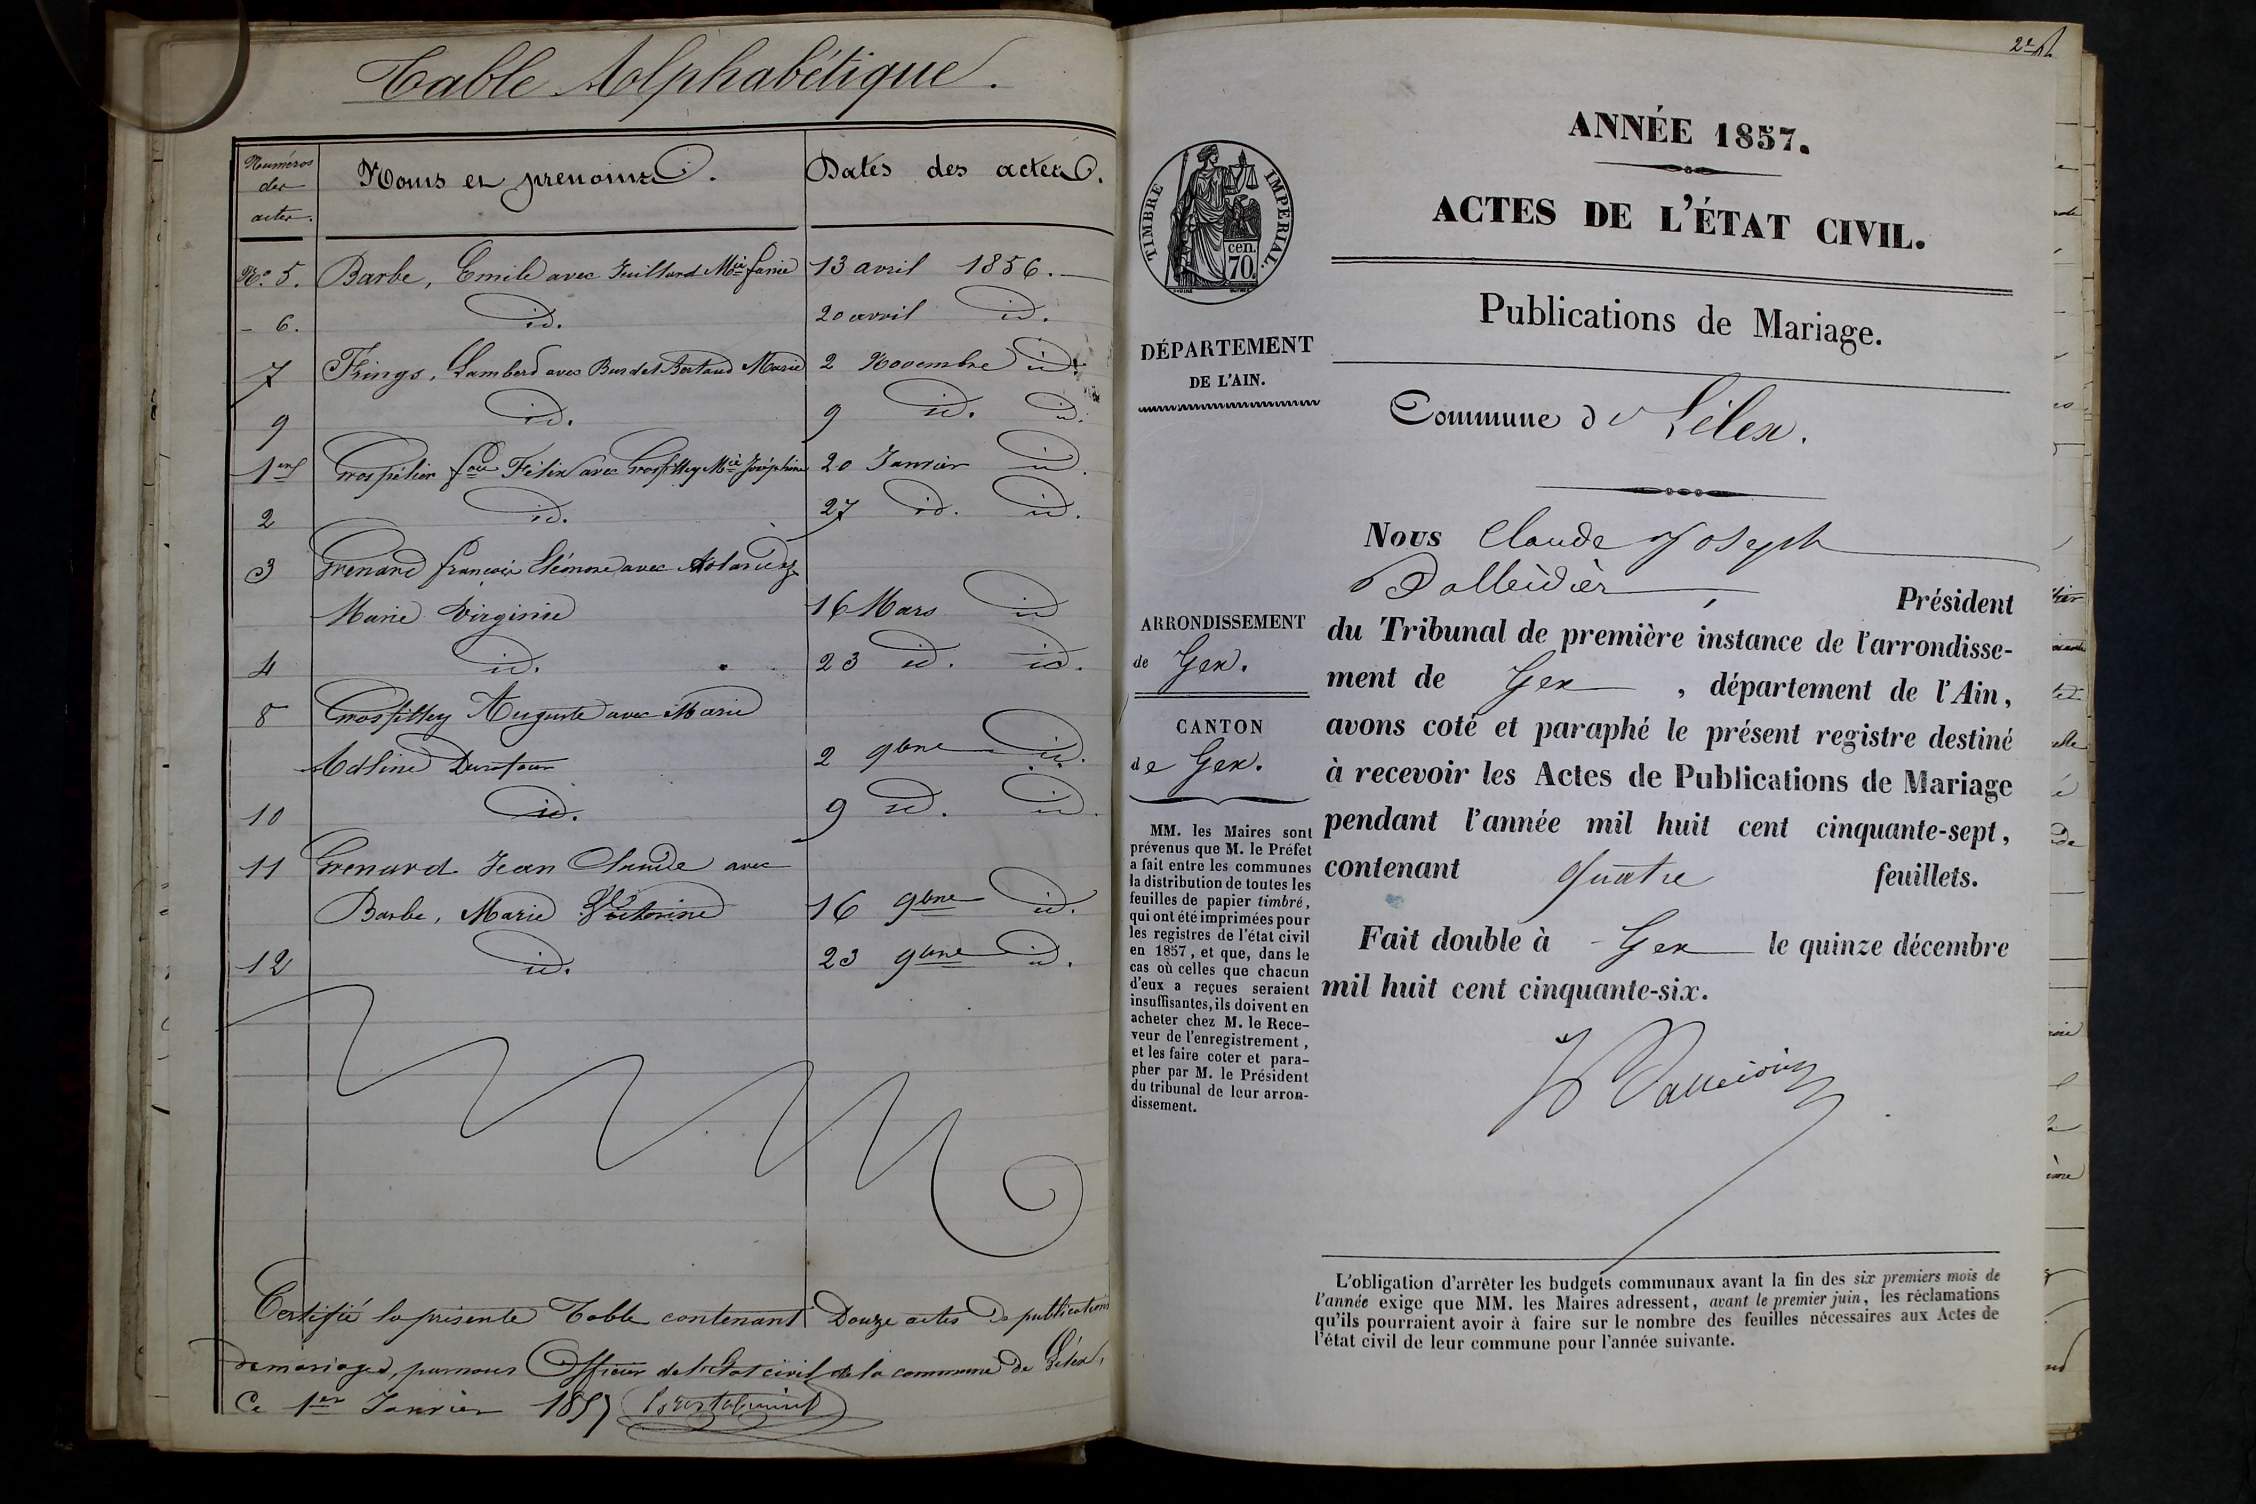 Table Alphabétique.
Numéros des actes.
Noms et prénoms.
Dates des actes.
No. 5. Barbe, Emile avec Juillard Mie fanie 13 avril 1856.
- 6. id. 20 avril id.
7 Frings, Lambert avec Burdet Bertand Marie 2 Novembre id.
9 id. 9 id. id.
1er Grospélier fois Félix avec Grosfilley Mie Joséphine 20 Janvier id.
2 id. 27 id. id.
3 Grenard françois Eléonore avec
Marie Virginie 16 Mars id
4 id. 23 id. id.
8 Grosfilley Auguste avec Marie
Adline Durafour 2 9bre id.
10 id. 9 id. id.
11 Grenard Jean Claude avec
Barbe, Marie Victorine 16 9bre id.
12 id. 23 9bre id.
Certifié la présente Table contenant Douze actes de publications
de mariages, par nous Officier de l'Etat civil de la commune de Lélex,
Ce 1er Janvier 1857
ANNÉE 1857.
ACTES DE L'ÉTAT CIVIL.
Publications de Mariage.
TIMBRE IMPÉRIAL.
cen.
70.
DÉPARTEMENT
DE L'AIN.
Commune de Lélex.
ARRONDISSEMENT
de Gex.
CANTON
de Gex.
MM. les Maires sont
prévenus que M. le Préfet
a fait entre les communes
la distribution de toutes les
feuilles de papier timbré,
qui ont été imprimées pour
les registres de l'état civil
en 1857, et que, dans le
cas où celles que chacun
d'eux a reçues seraient
insuffisantes, ils doivent en
acheter chez M. le Rece-
veur de l'enregistrement,
et les faire coter et para-
pher par M. le Président
du tribunal de leur arron-
dissement.
Nous Claude Joseph
Président
du Tribunal de première instance de l'arrondisse-
ment de Gex, département de l'Ain,
avons coté et paraphé le présent registre destiné
à recevoir les Actes de Publications de Mariage
pendant l'année mil huit cent cinquante-sept,
contenant quatre feuillets.
Fait double à Gex le quinze décembre
mil huit cent cinquante-six.
L'obligation d'arrêter les budgets communaux avant la fin des six premiers mois de
l'année exige que MM. les Maires adressent, avant le premier juin, les réclamations
qu'ils pourraient avoir à faire sur le nombre des feuilles nécessaires aux Actes de
l'état civil de leur commune pour l'année suivante.